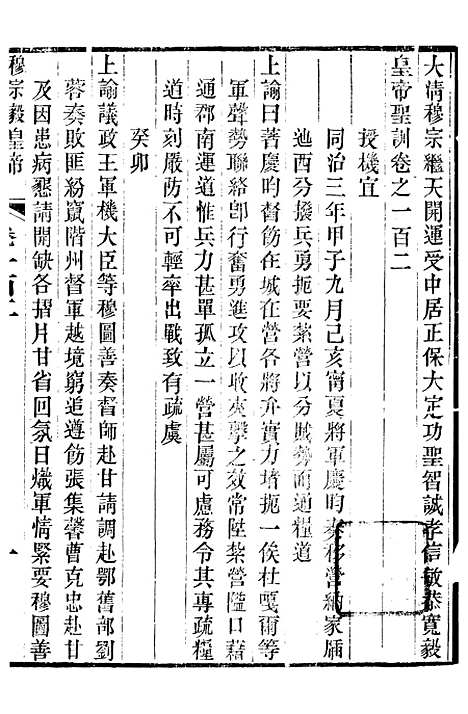 大清穆宗繼天開運受中居正保大定功聖智誠孝信敏恭寬毅
皇帝聖訓卷之一百二
授機宜
同治三年甲子九月己亥甯夏將軍慶昀奏移營納家庙
迤西分撥兵勇扼要紮營以分賊勢而通糧道
上諭曰著慶昀督飭在城在營各將弁實力堵扼一俟杜嘎爾等
軍聲勢聯絡卽行奮勇進攻以收夾擊之效常陞紮營隘口藉
通郡南運道惟兵力甚單孤立一營甚屬可慮務令其專疏糧
道時刻嚴防不可輕率出戰致有疏虞
癸卯
上諭議政王軍機大臣等穆圖善奏督師赴甘請調赴鄂舊部劉
蓉奏敗匪紛竄階州督軍越境窮追遵飭張集馨曹克忠赴甘
及因患病懇請開缺各摺片甘省回氛日熾軍情緊要穆圖善
穆宗毅皇帝 卷一百二 一